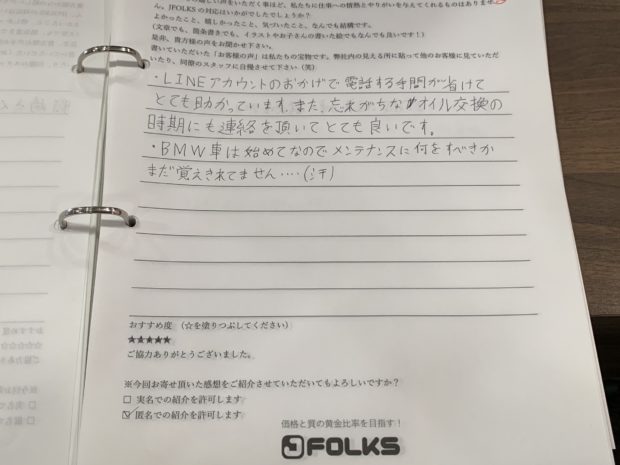 ん。JFOLKS の対応はいかがでしたでしょうか？
よかったこと、嬉しかったこと、気づいたこと、なんでも結構です。
（文章でも、箇条書きでも、イラストやお子さんの書いた絵でもなんでも良いです！）
是非、貴方様の声をお聞かせ下さい。
書いていただいた「お客様の声」は私たちの宝物です。弊社内の見える所に貼って他のお客様に見ていただ
いたり、同僚のスタッフに自慢させて下さい（笑）
・LINEアカウントのおかげで電話する手間が省けて
とても助かっています。また、忘れがちなオイル交換の
時期にも連絡を頂いてとても良いです。
・BMW車は始めてなのでメンテナンスに何をすべきか
まだ覚えきれてません‥‥(汗)
おすすめ度 （☆を塗りつぶしてください）
★★★★★
ご協力ありがとうございました。
※今回お寄せ頂いた感想をご紹介させていただいてもよろしいですか？
□ 実名での紹介を許可します
☑ 匿名での紹介を許可します
価格と質の黄金比率を目指す！
JFOLKS